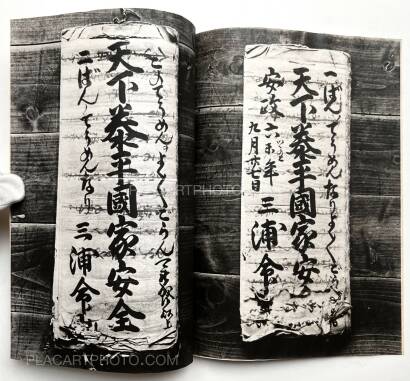 一ばんてうめんなりよくよくごらん
天下泰平國家安全
安政六未年 三浦命助
九月廿七日
このてうめんよくよくごらん
天下泰平國家安全
二ばんてうめんなり 三浦命助
PLACARTPHOTO.COM
PLACARTPHOTO.COM